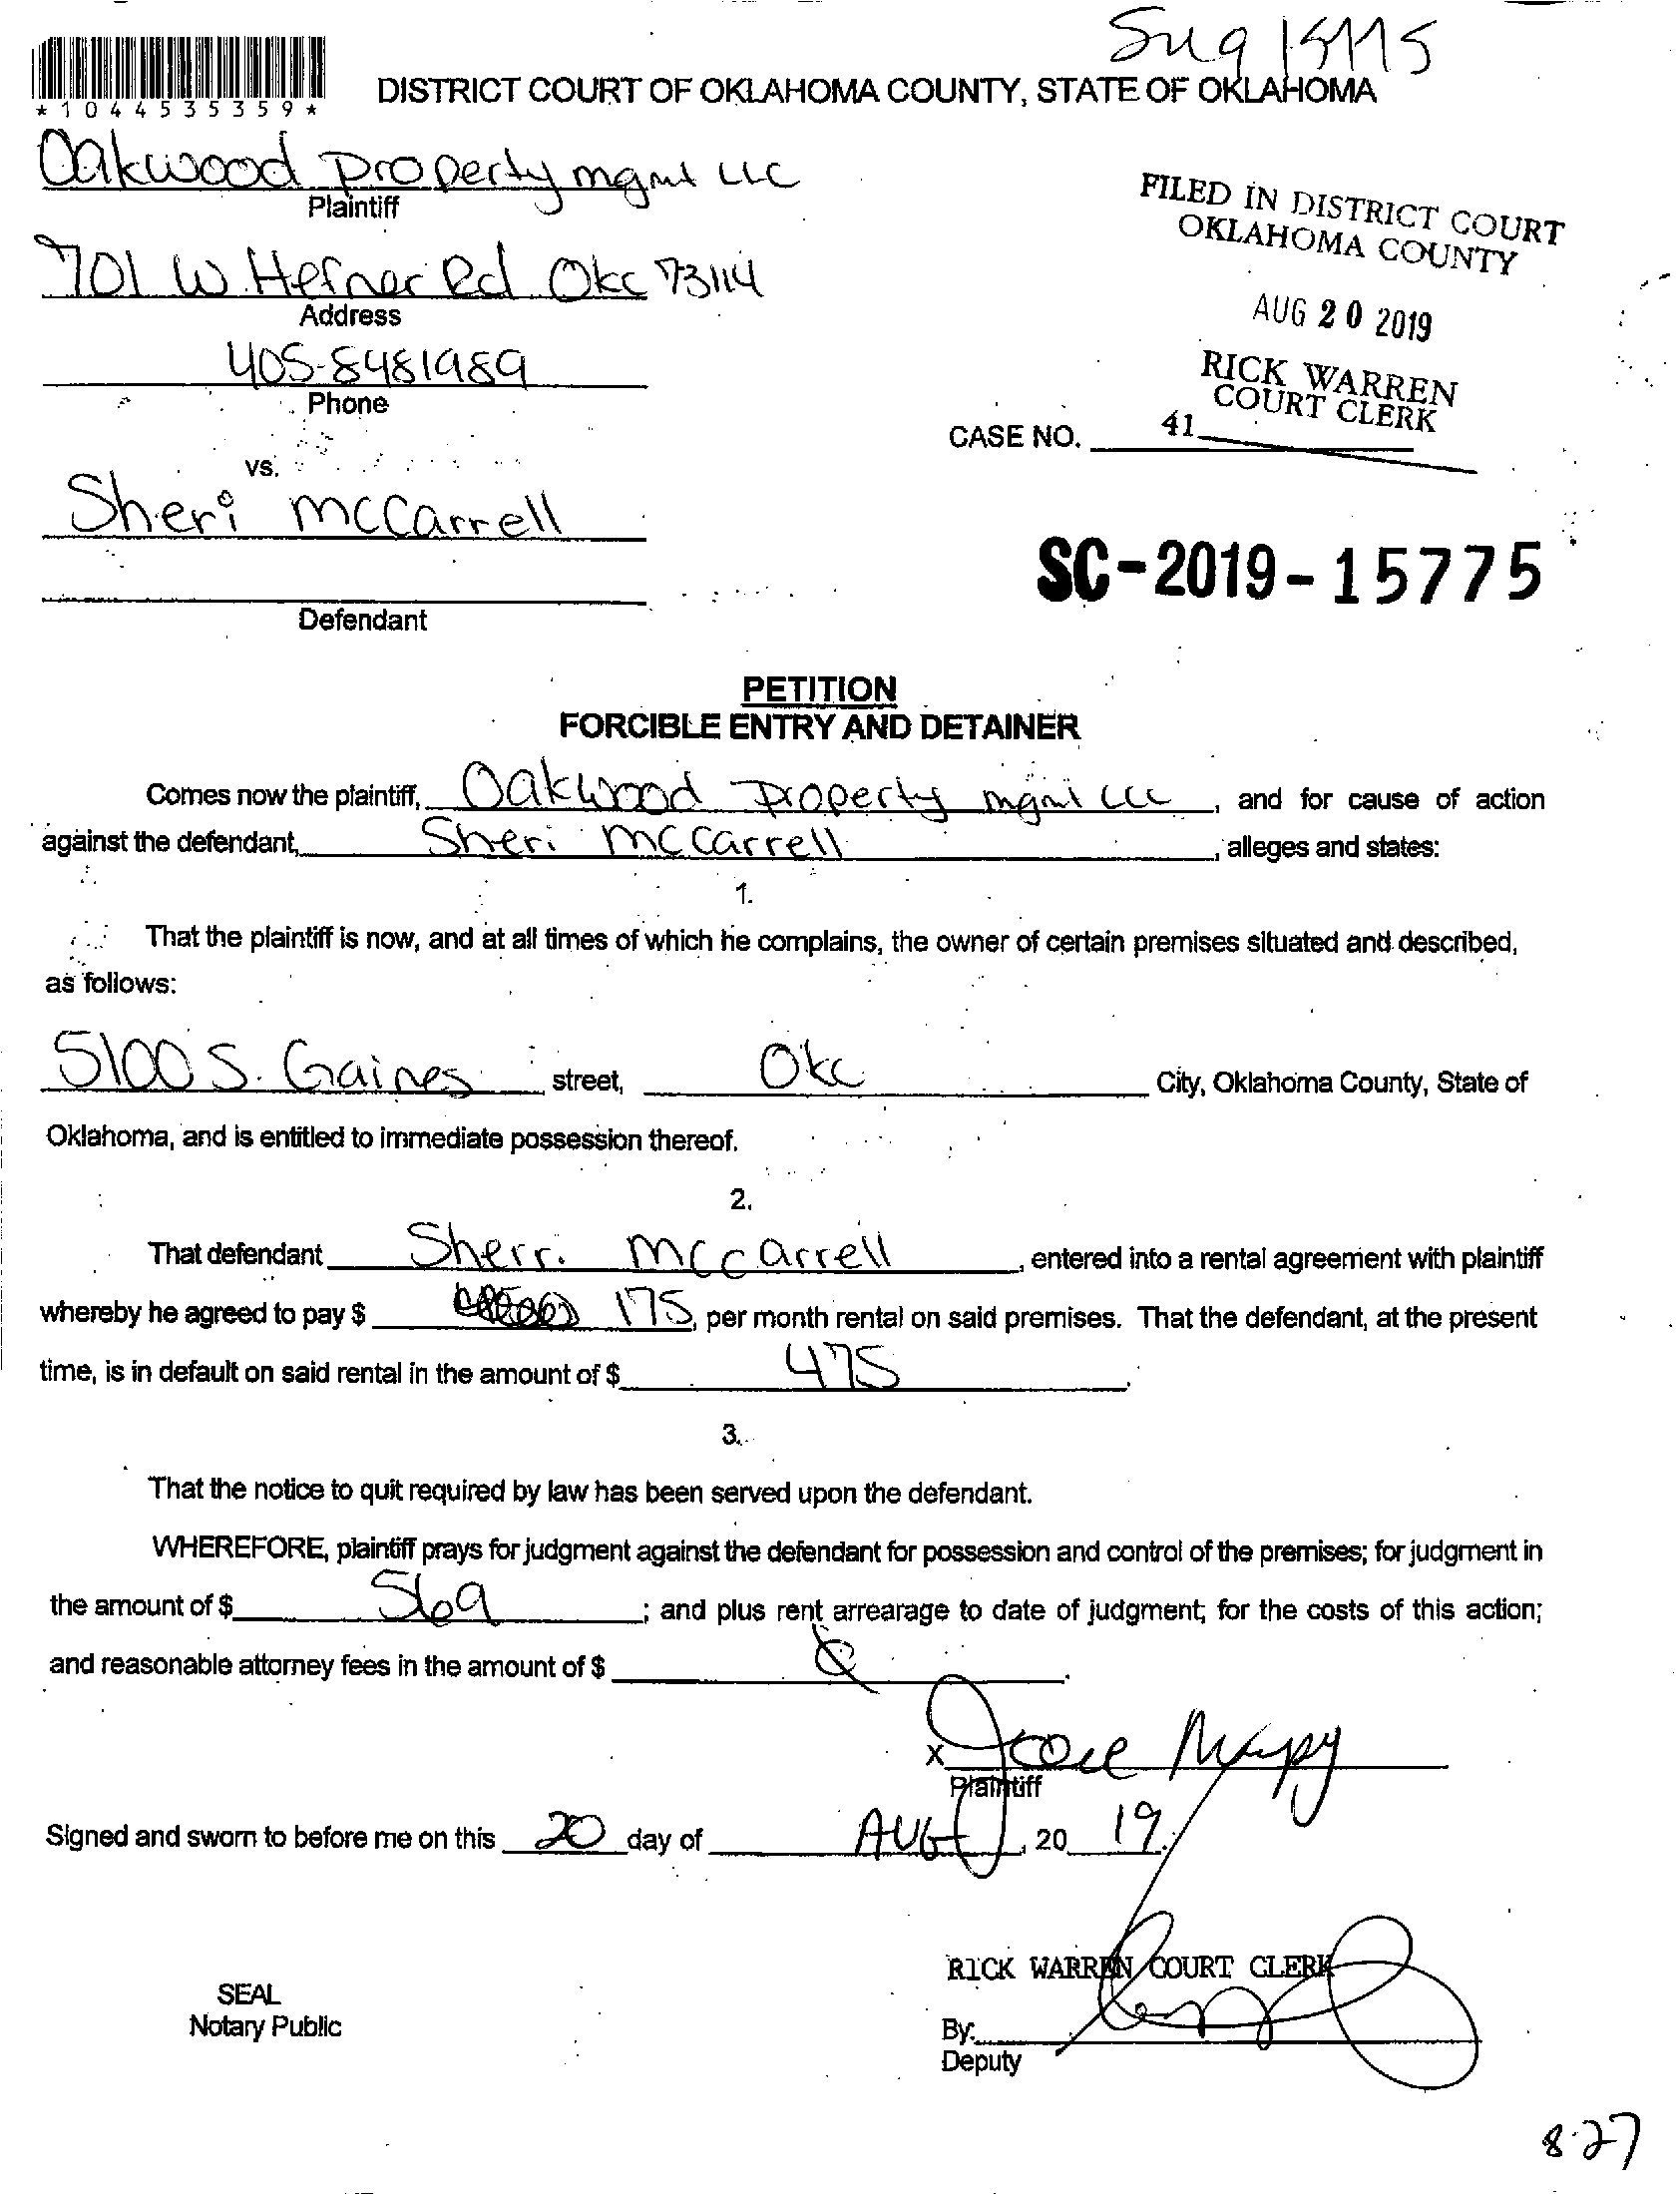 *1044535359*
DISTRICT COURT OF OKLAHOMA COUNTY, STATE OF OKLAHOMA
Oakwood Property mgmt LLC
Plaintiff
701 W. Hefner Rd Okc 73114
Address
405-8481989
Phone
FILED IN DISTRICT COURT
OKLAHOMA COUNTY
AUG 20 2019
RICK WARREN
COURT CLERK
CASE NO. 41
vs.
Sheri McCarrell
Defendant
SC-2019-15775
PETITION
FORCIBLE ENTRY AND DETAINER
Comes now the plaintiff, Oakwood Property mgmt LLC, and for cause of action
against the defendant, Sheri McCarrell, alleges and states:
1.
That the plaintiff is now, and at all times of which he complains, the owner of certain premises situated and described,
as follows:
5100 S. Gaines street, Okc City, Oklahoma County, State of
Oklahoma, and is entitled to immediate possession thereof.
2.
That defendant Sherri McCarrell, entered into a rental agreement with plaintiff
whereby he agreed to pay $ 175, per month rental on said premises. That the defendant, at the present
time, is in default on said rental in the amount of $ 475.
3.
That the notice to quit required by law has been served upon the defendant.
WHEREFORE, plaintiff prays for judgment against the defendant for possession and control of the premises; for judgment in
the amount of $ 569; and plus rent arrearage to date of judgment; for the costs of this action;
and reasonable attorney fees in the amount of $
X
Plaintiff
Signed and sworn to before me on this 20 day of AUG, 20 19.
RICK WARREN COURT CLERK
SEAL
Notary Public
By:
Deputy
8-27